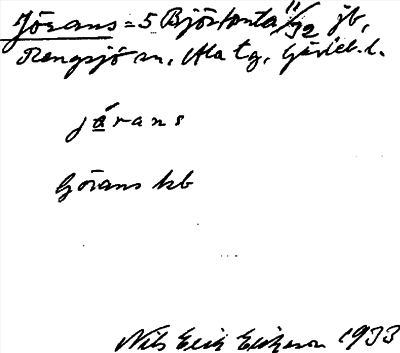 Jörans = 5 Björktuta 11/92 jb,
Rengsjö sn, Ala tg, Gävleb. l.
járans
Görans kb
Nils Erik Erikson 1933